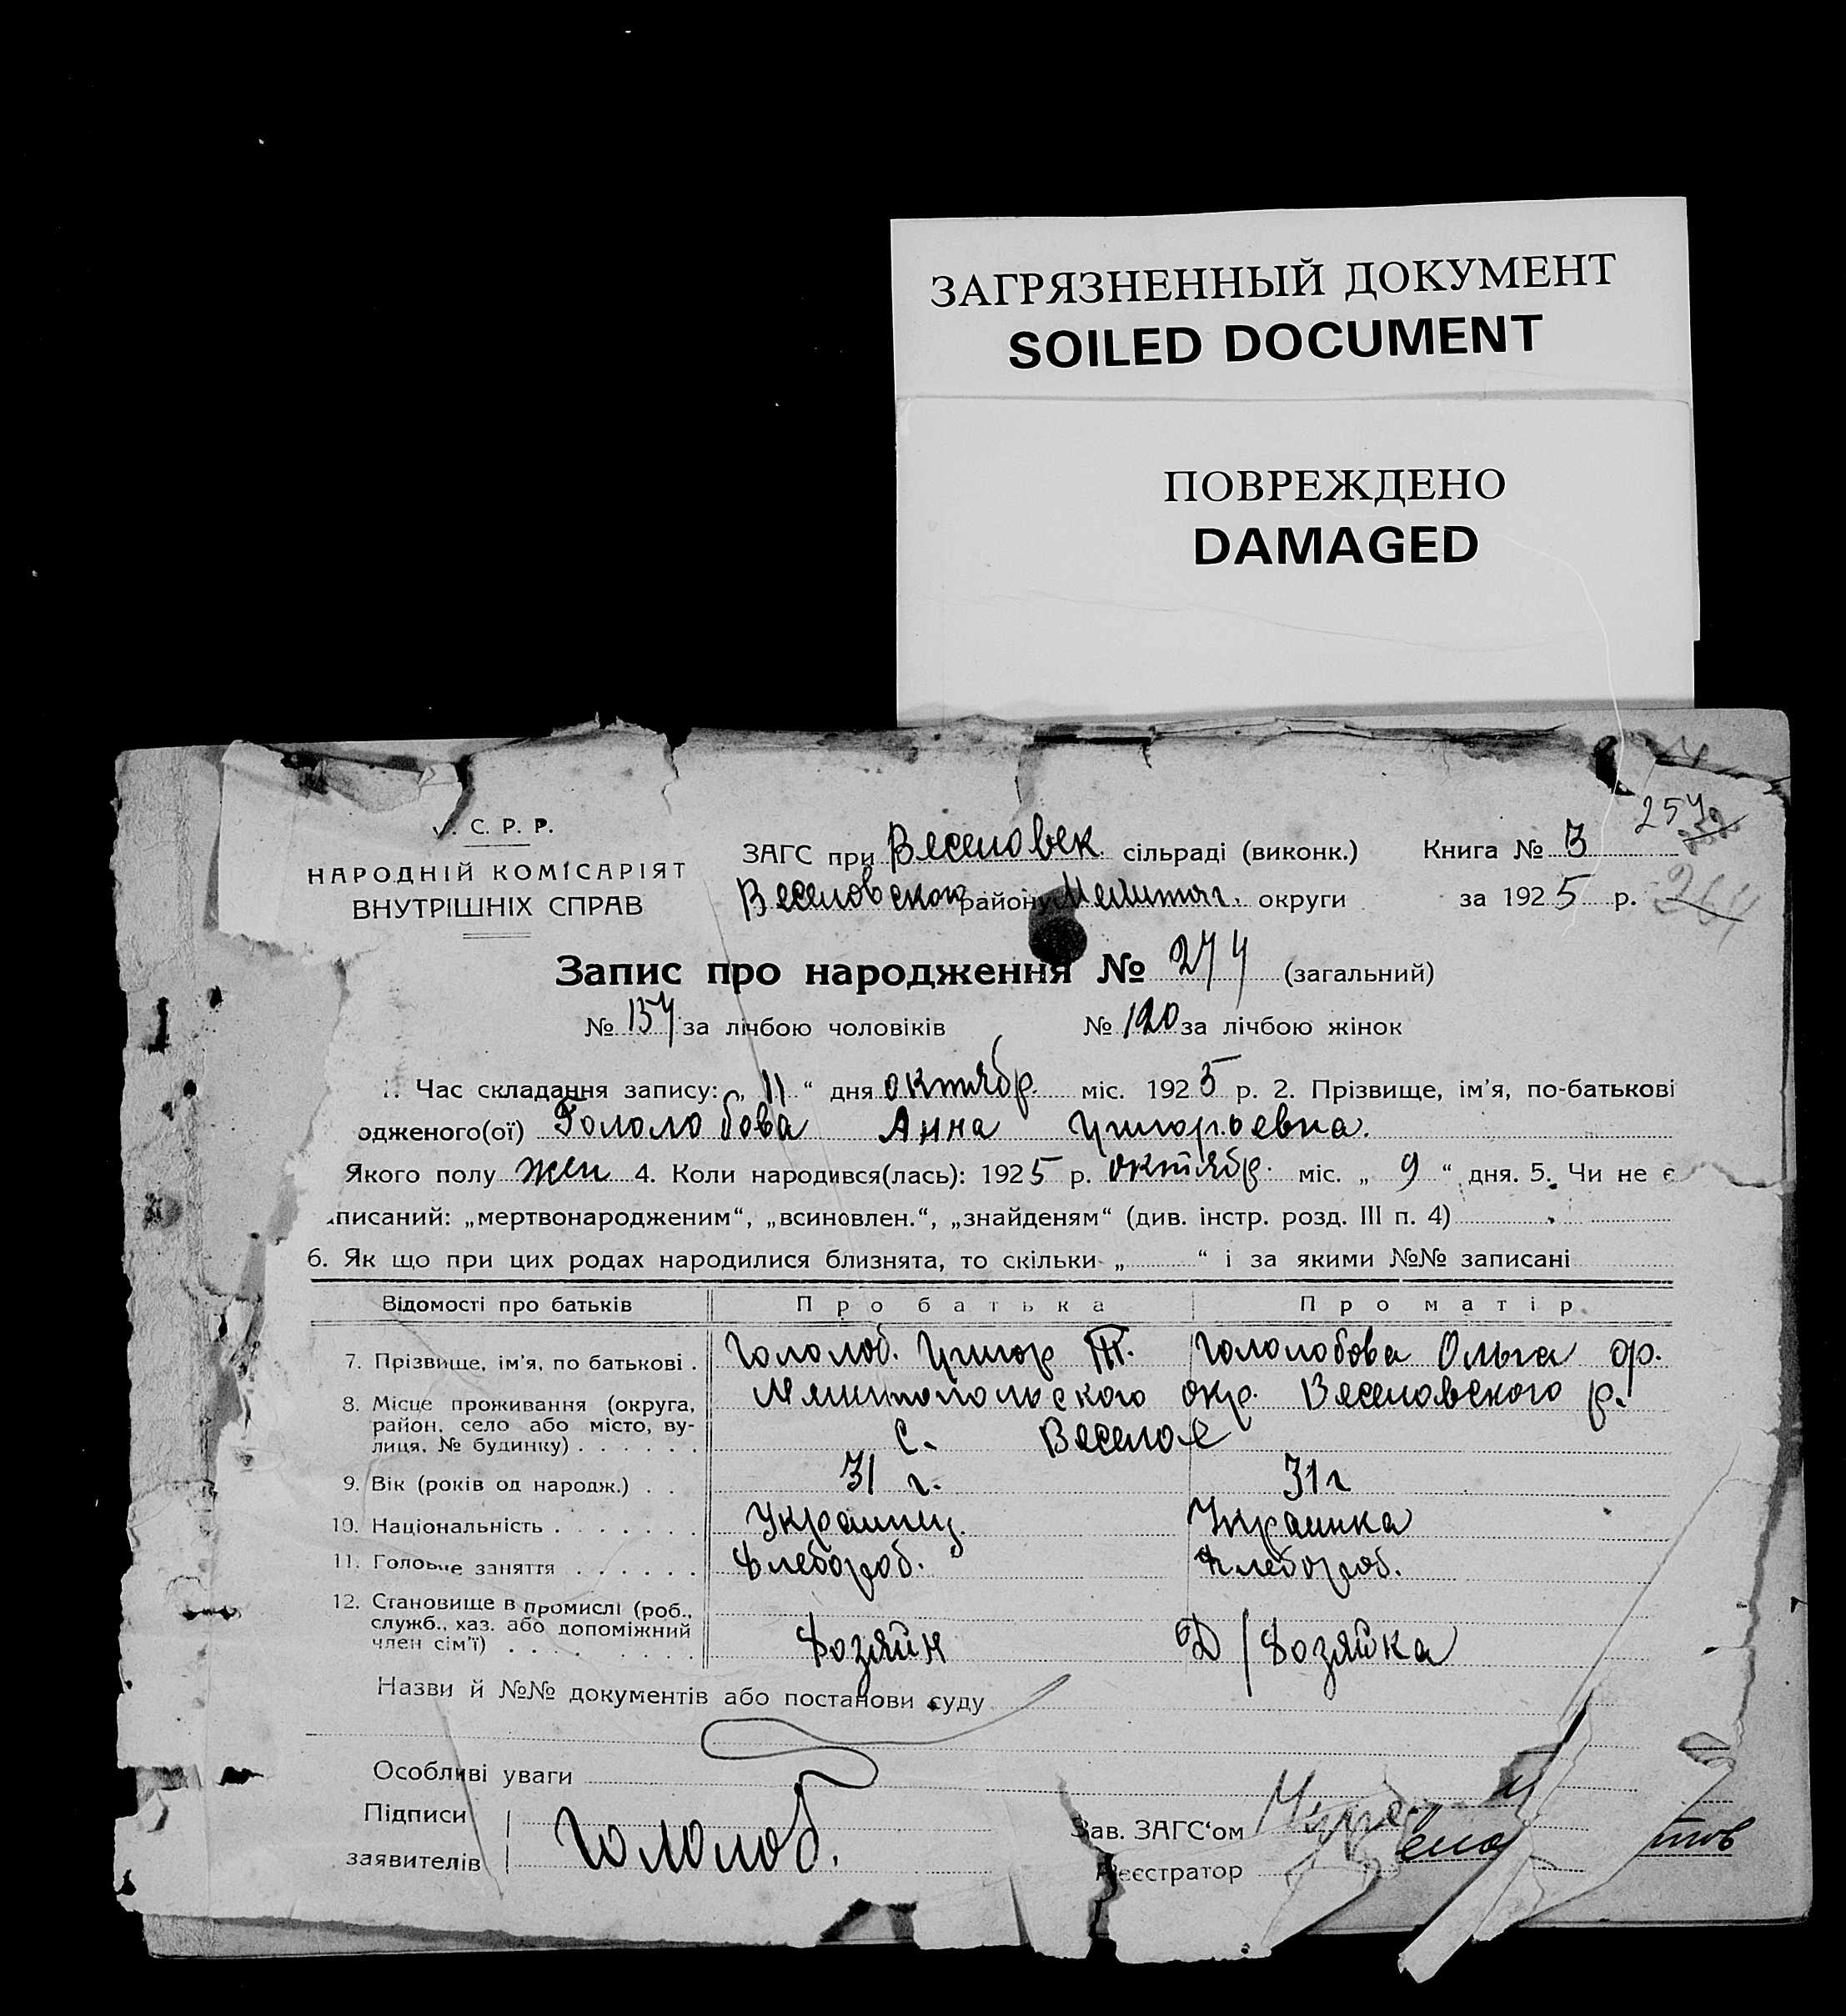 ЗАГРЯЗНЕННЫЙ ДОКУМЕНТ
SOILED DOCUMENT
ПОВРЕЖДЕНО
DAMAGED
С. Р. Р.
НАРОДНІЙ КОМІСАРІЯТ
ВНУТРІШНІХ СПРАВ
ЗАГС при Веселовск сільраді (виконк.) Книга № 3
Веселовского району Мелитоп. округи за 1925 р. 264
Запис про народження № 277 (загальний)
№ 157 за лічбою чоловіків № 120 за лічбою жінок
Час складання запису: „ 11 “ дня октябр. міс. 1925 р. 2. Прізвище, ім'я, по-батькові
одженого(ої) Гололобова Анна Григорьевна.
Якого полу жен 4. Коли народився(лась): 1925 р. октябр. міс. „ 9 “ дня. 5. Чи не є
писаний: „мертвонародженим“, „всиновлен.“, „знайденям“ (див. інстр. розд. III п. 4)
6. Як що при цих родах народилися близнята, то скільки „ “ і за якими №№ записані
Відомості про батьків Про батька Про матір
7. Прізвище, ім'я, по батькові . Гололоб. Григор Т. Гололобова Ольга Ф.
8. Місце проживання (округа, район, село або місто, вулиця, № будинку) Мелитопольского окр. Веселовского р.
с. Веселое
9. Вік (років од народж.) . . 31 г. 31 г
10. Національність . . . . . . . Украинец. Украинка
11. Головне заняття . . . . . . Хлебороб. Хлебороб.
12. Становище в промислі (роб., служб., хаз. або допоміжний член сім'ї) Хозяин Д/Хозяйка
Назви й №№ документів або постанови суду
Особливі уваги
Підписи
заявителів Гололоб.
Зав. ЗАГС‘ом
еєстратор